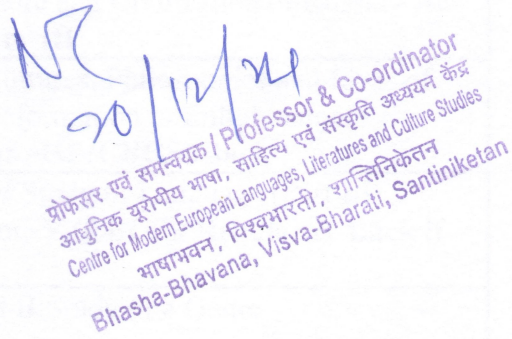 20/12/24
प्रोफेसर एवं समन्वयक / Professor & Co-ordinator
आधुनिक यूरोपीय भाषा, साहित्य एवं संस्कृति अध्ययन केंद्र
Centre for Modern European Languages, Literatures and Culture Studies
भाषाभवन, विश्वभारती, शान्तिनिकेतन
Bhasha-Bhavana, Visva-Bharati, Santiniketan